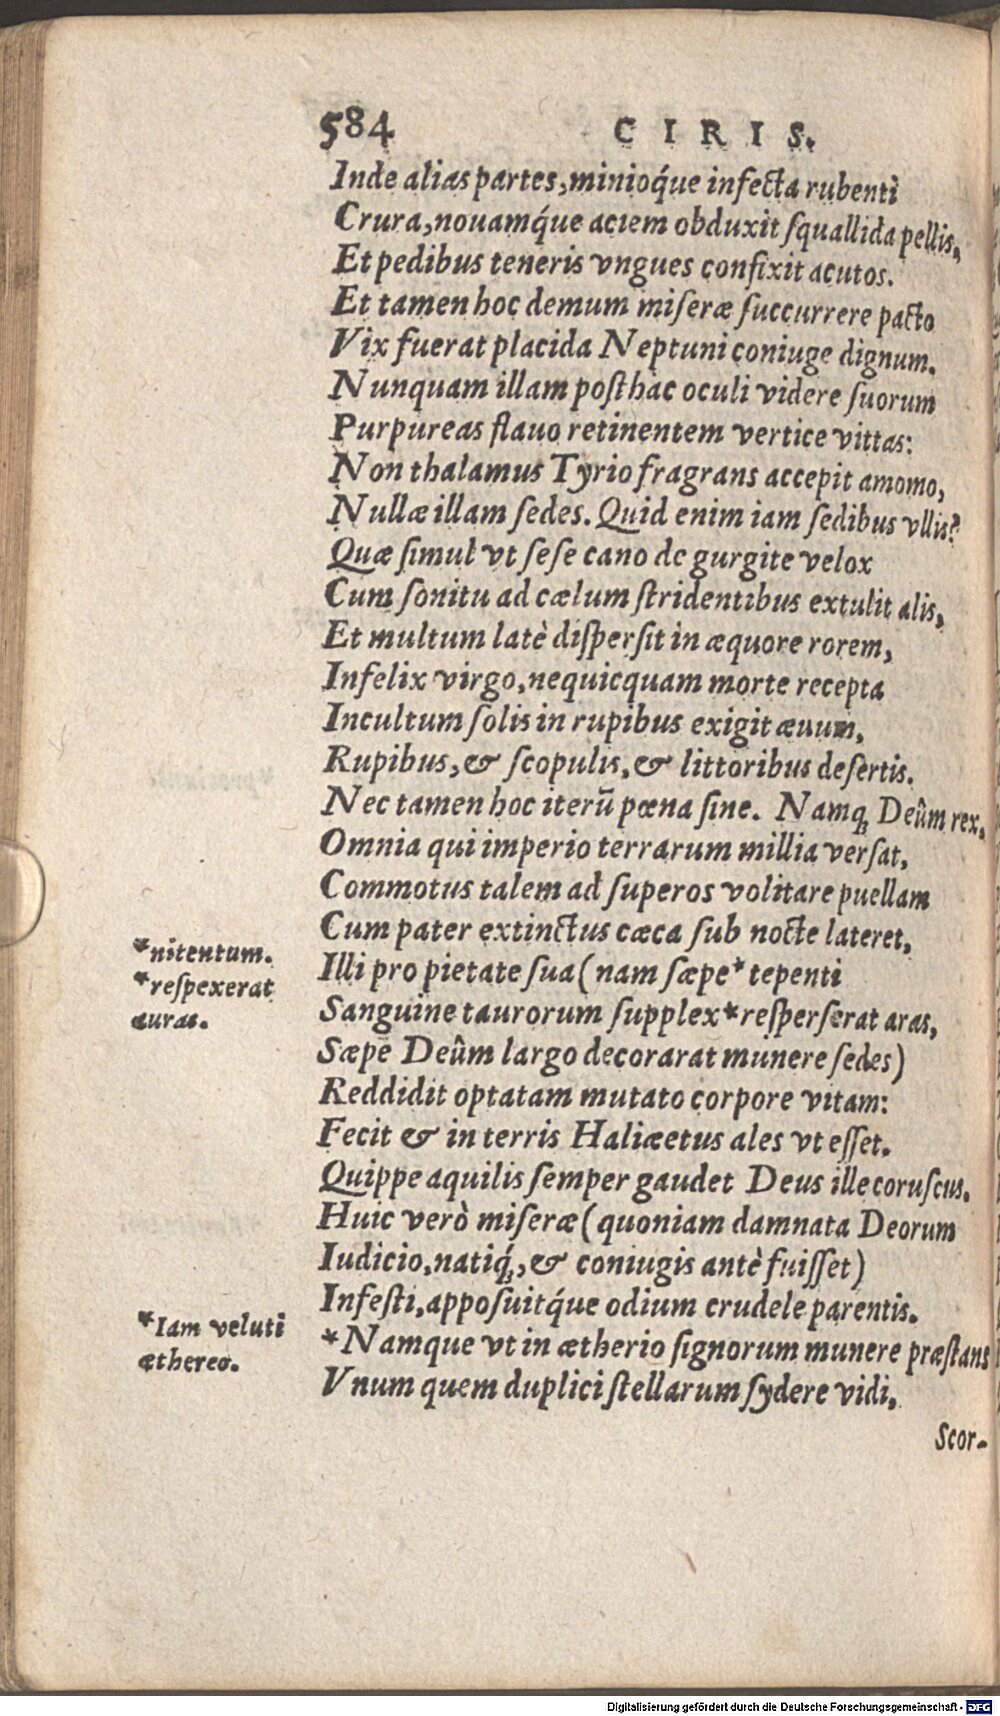 584 CIRIS.
Inde alias partes, minioq́ue infecta rubenti
Crura, nouamq́ue aciem obduxit ſquallida pellis,
Et pedibus teneris vngues confixit acutos.
Et tamen hoc demum miſeræ ſuccurrere pacto
Vix fuerat placida Neptuni coniuge dignum.
Nunquam illam poſthac oculi videre ſuorum
Purpureas flauo retinentem vertice vittas:
Non thalamus Tyrio fragrans accepit amomo,
Nullæ illam ſedes. Quid enim iam ſedibus vllis?
Quæ ſimul vt ſeſe cano de gurgite velox
Cum ſonitu ad cælum ſtridentibus extulit alis,
Et multum latè diſperſit in æquore rorem,
Infelix virgo, nequicquam morte recepta
Incultum ſolis in rupibus exigit æuum,
Rupibus, & ſcopulis, & littoribus deſertis.
Nec tamen hoc iterū pœna ſine. Namq; Deûm rex,
Omnia qui imperio terrarum millia verſat,
Commotus talem ad ſuperos volitare puellam
Cum pater extinctus cæca ſub nocte lateret,
*nitentum.
Illi pro pietate ſua (nam ſæpe * tepenti
*reſpexerat
auras.
Sanguine taurorum ſupplex * reſperſerat aras,
Sæpe Deûm largo decorarat munere ſedes)
Reddidit optatam mutato corpore vitam:
Fecit & in terris Haliæetus ales vt eſſet.
Quippe aquilis ſemper gaudet Deus ille coruſcus.
Huic verò miſeræ (quoniam damnata Deorum
Iudicio, natiq́;, & coniugis antè fuiſſet)
Infeſti, appoſuitq́ue odium crudele parentis.
*Iam veluti
æthereo.
*Namque vt in ætherio ſignorum munere præſtans
Vnum quem duplici ſtellarum ſydere vidi,
Scor-
Digitalisierung gefördert durch die Deutsche Forschungsgemeinschaft - DFG